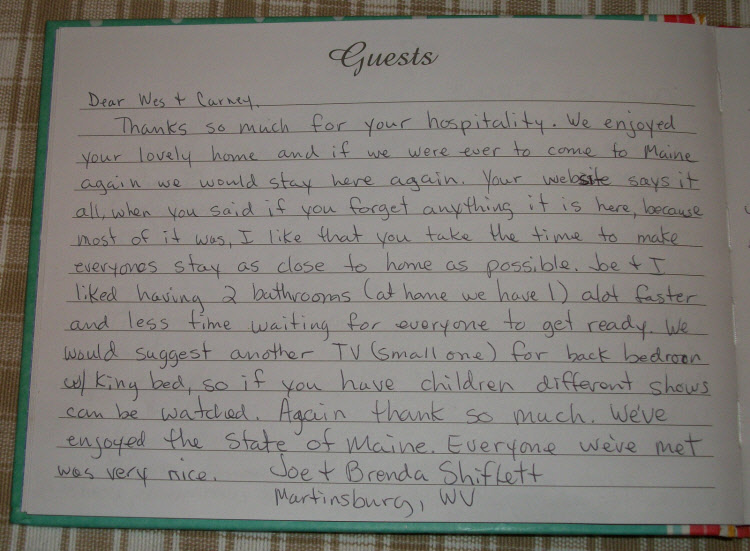 Guests
Dear Wes + Carney,
Thanks so much for your hospitality. We enjoyed
your lovely home and if we were ever to come to Maine
again we would stay here again. Your website says it
all, when you said if you forget anything it is here, because
most of it was, I like that you take the time to make
everyones stay as close to home as possible. Joe + I
liked having 2 bathrooms (at home we have 1) alot faster
and less time waiting for everyone to get ready. We
would suggest another TV (small one) for back bedroom
w/ King bed, so if you have children different shows
can be watched. Again thank so much. We've
enjoyed the State of Maine. Everyone we've met
was very nice. Joe + Brenda Shiflett
Martinsburg, WV